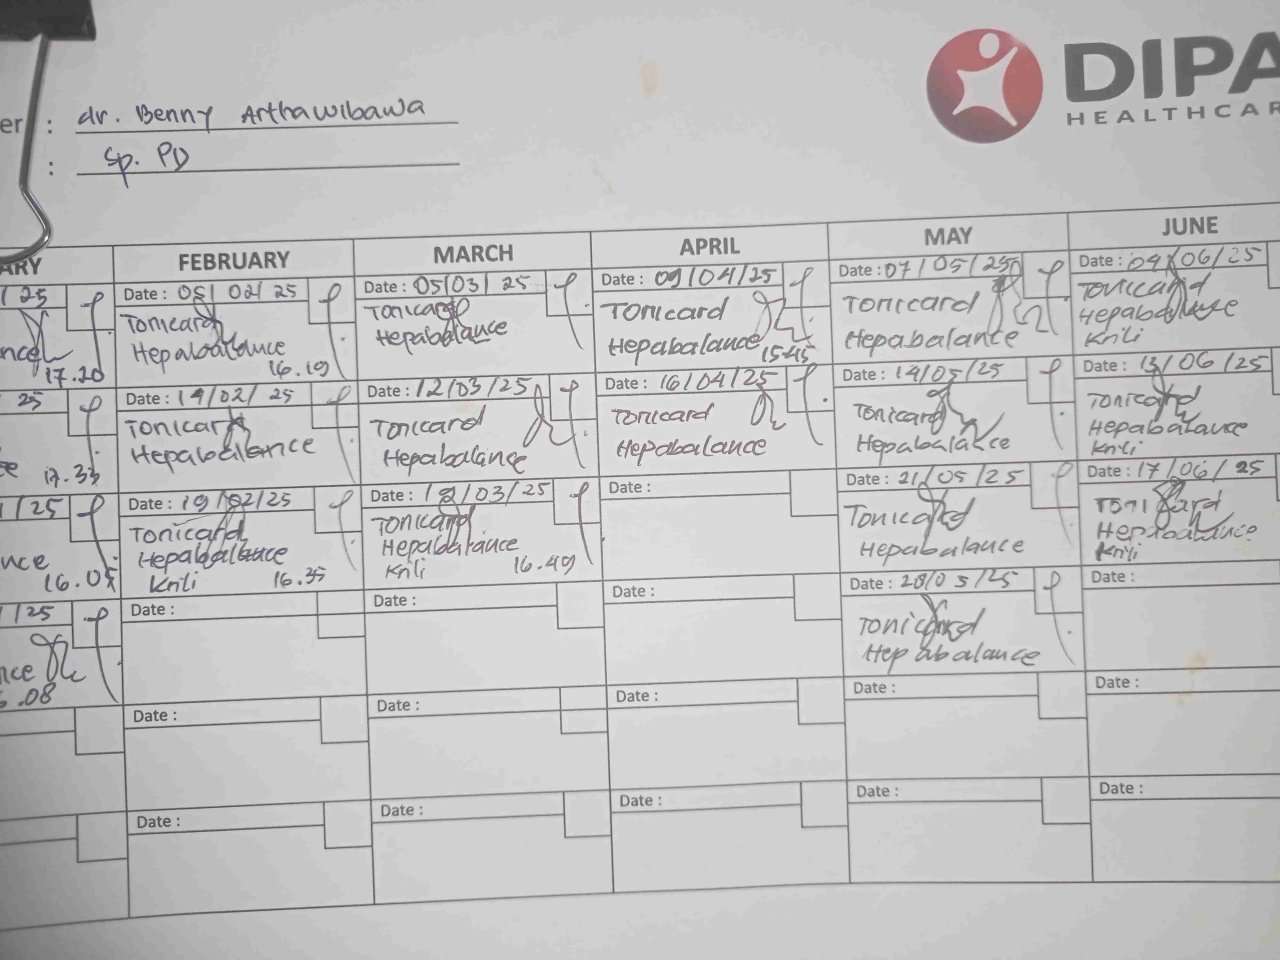 DIPA
HEALTHCAR
er : dr. Benny Arthawibawa
: Sp. PD
ARY FEBRUARY MARCH APRIL MAY JUNE
/ 25
nce
17.20
Date : 05/ 02/ 25
Tonicard
Hepabalance
16.19
Date : 05/03/ 25
Tonicard
Hepabalance
Date : 09/04/25
Tonicard
Hepabalance
15.45
Date : 07/05/25
Tonicard
Hepabalance
Date : 04/06/25
Tonicard
Hepabalance
Krili
25
ce 17.33
Date : 14/02/ 25
Tonicard
Hepabalance
Date : 12/03/25
Tonicard
Hepabalance
Date : 16/04/25
Tonicard
Hepabalance
Date : 14/05/25
Tonicard
Hepabalance
Date : 13/06/25
Tonicard
Hepabalance
Krili
/25
nce
16.05
Date : 19/02/25
Tonicard
Hepabalance
Krili 16.35
Date : 18/03/25
Tonicard
Hepabalance
Krili 16.49
Date :
Date : 21/05/25
Tonicard
Hepabalance
Date : 17/06/25
Tonicard
Hepabalance
Krili
/25
nce
.08
Date :
Date :
Date :
Date : 28/05/25
Tonicard
Hepabalance
Date :
Date :
Date :
Date :
Date :
Date :
Date :
Date :
Date :
Date :
Date :